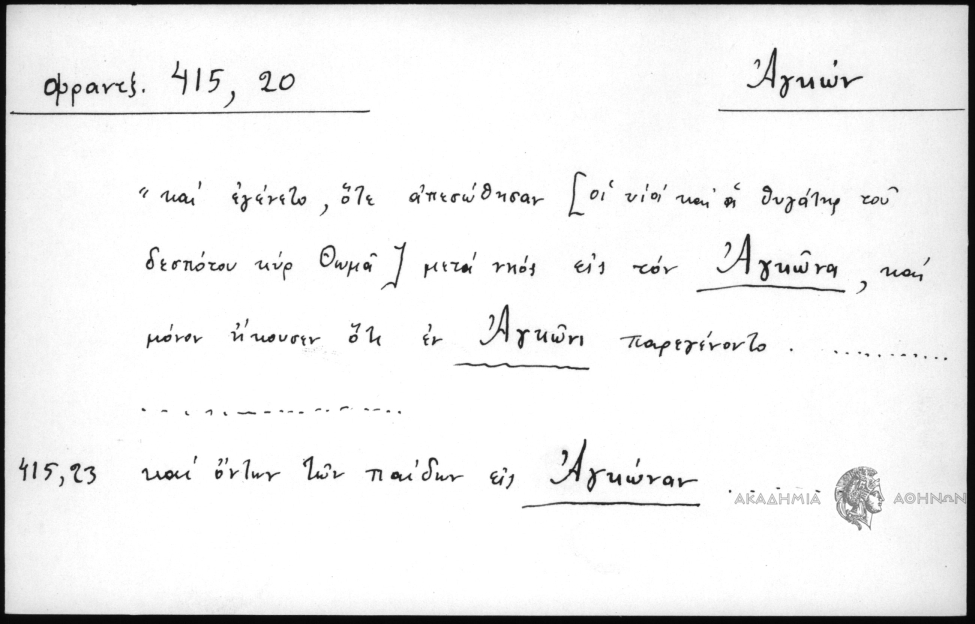 Φραντζ. 415, 20
Ἀγκών
"καί ἐγένετο, ὅτε ἀπεσώθησαν [οἱ υἱοί καί ἡ θυγάτηρ τοῦ
δεσπότου κύρ Θωμᾶ] μετά νηός εἰς τόν Ἀγκῶνα, καί
μόνον ἤκουσεν ὅτι ἐν Ἀγκῶνι παρεγένοντο. ............
....................
415,23 καί ὄντων τῶν παίδων εἰς Ἀγκώναν ......
ΑΚΑΔΗΜΙΑ ΑΘΗΝΩΝ